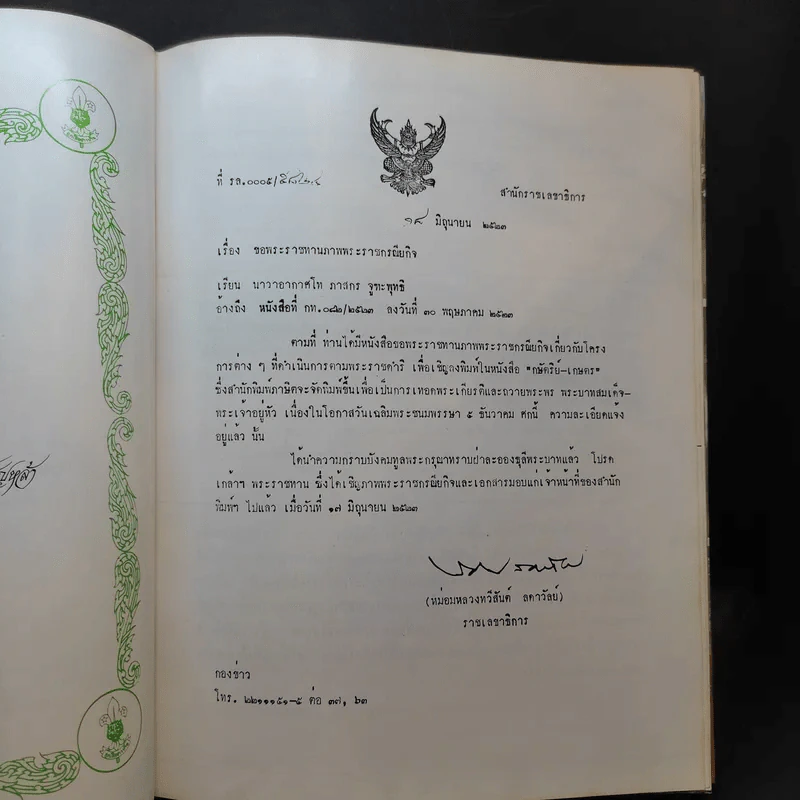 ที่ รล.๐๐๐๕/
สำนักราชเลขาธิการ
๑๘ มิถุนายน ๒๕๒๓
เรื่อง ขอพระราชทานภาพพระราชกรณียกิจ
เรียน นาวาอากาศโท ภาสกร จูฑะพุทธิ
อ้างถึง หนังสือที่ กท.๐๘๒/๒๕๒๓ ลงวันที่ ๓๐ พฤษภาคม ๒๕๒๓
ตามที่ ท่านได้มีหนังสือขอพระราชทานภาพพระราชกรณียกิจเกี่ยวกับโครง
การต่าง ๆ ที่ดำเนินการตามพระราชดำริ เพื่อเชิญลงพิมพ์ในหนังสือ "กษัตริย์-เกษตร"
ซึ่งสำนักพิมพ์ภาษิตจะจัดพิมพ์ขึ้นเพื่อเป็นการเทอดพระเกียรติและถวายพระพร พระบาทสมเด็จ-
พระเจ้าอยู่หัว เนื่องในโอกาสวันเฉลิมพระชนมพรรษา ๕ ธันวาคม ศกนี้ ความละเอียดแจ้ง
อยู่แล้ว นั้น
ได้นำความกราบบังคมทูลพระกรุณาทราบฝ่าละอองธุลีพระบาทแล้ว โปรด
เกล้าฯ พระราชทาน ซึ่งได้เชิญภาพพระราชกรณียกิจและเอกสารมอบแก่เจ้าหน้าที่ของสำนัก
พิมพ์ฯ ไปแล้ว เมื่อวันที่ ๑๗ มิถุนายน ๒๕๒๓
(หม่อมหลวงทวีสันต์ ลดาวัลย์)
ราชเลขาธิการ
กองข่าว
โทร. ๒๒๑๑๑๕๑-๕ ต่อ ๓๗, ๖๓